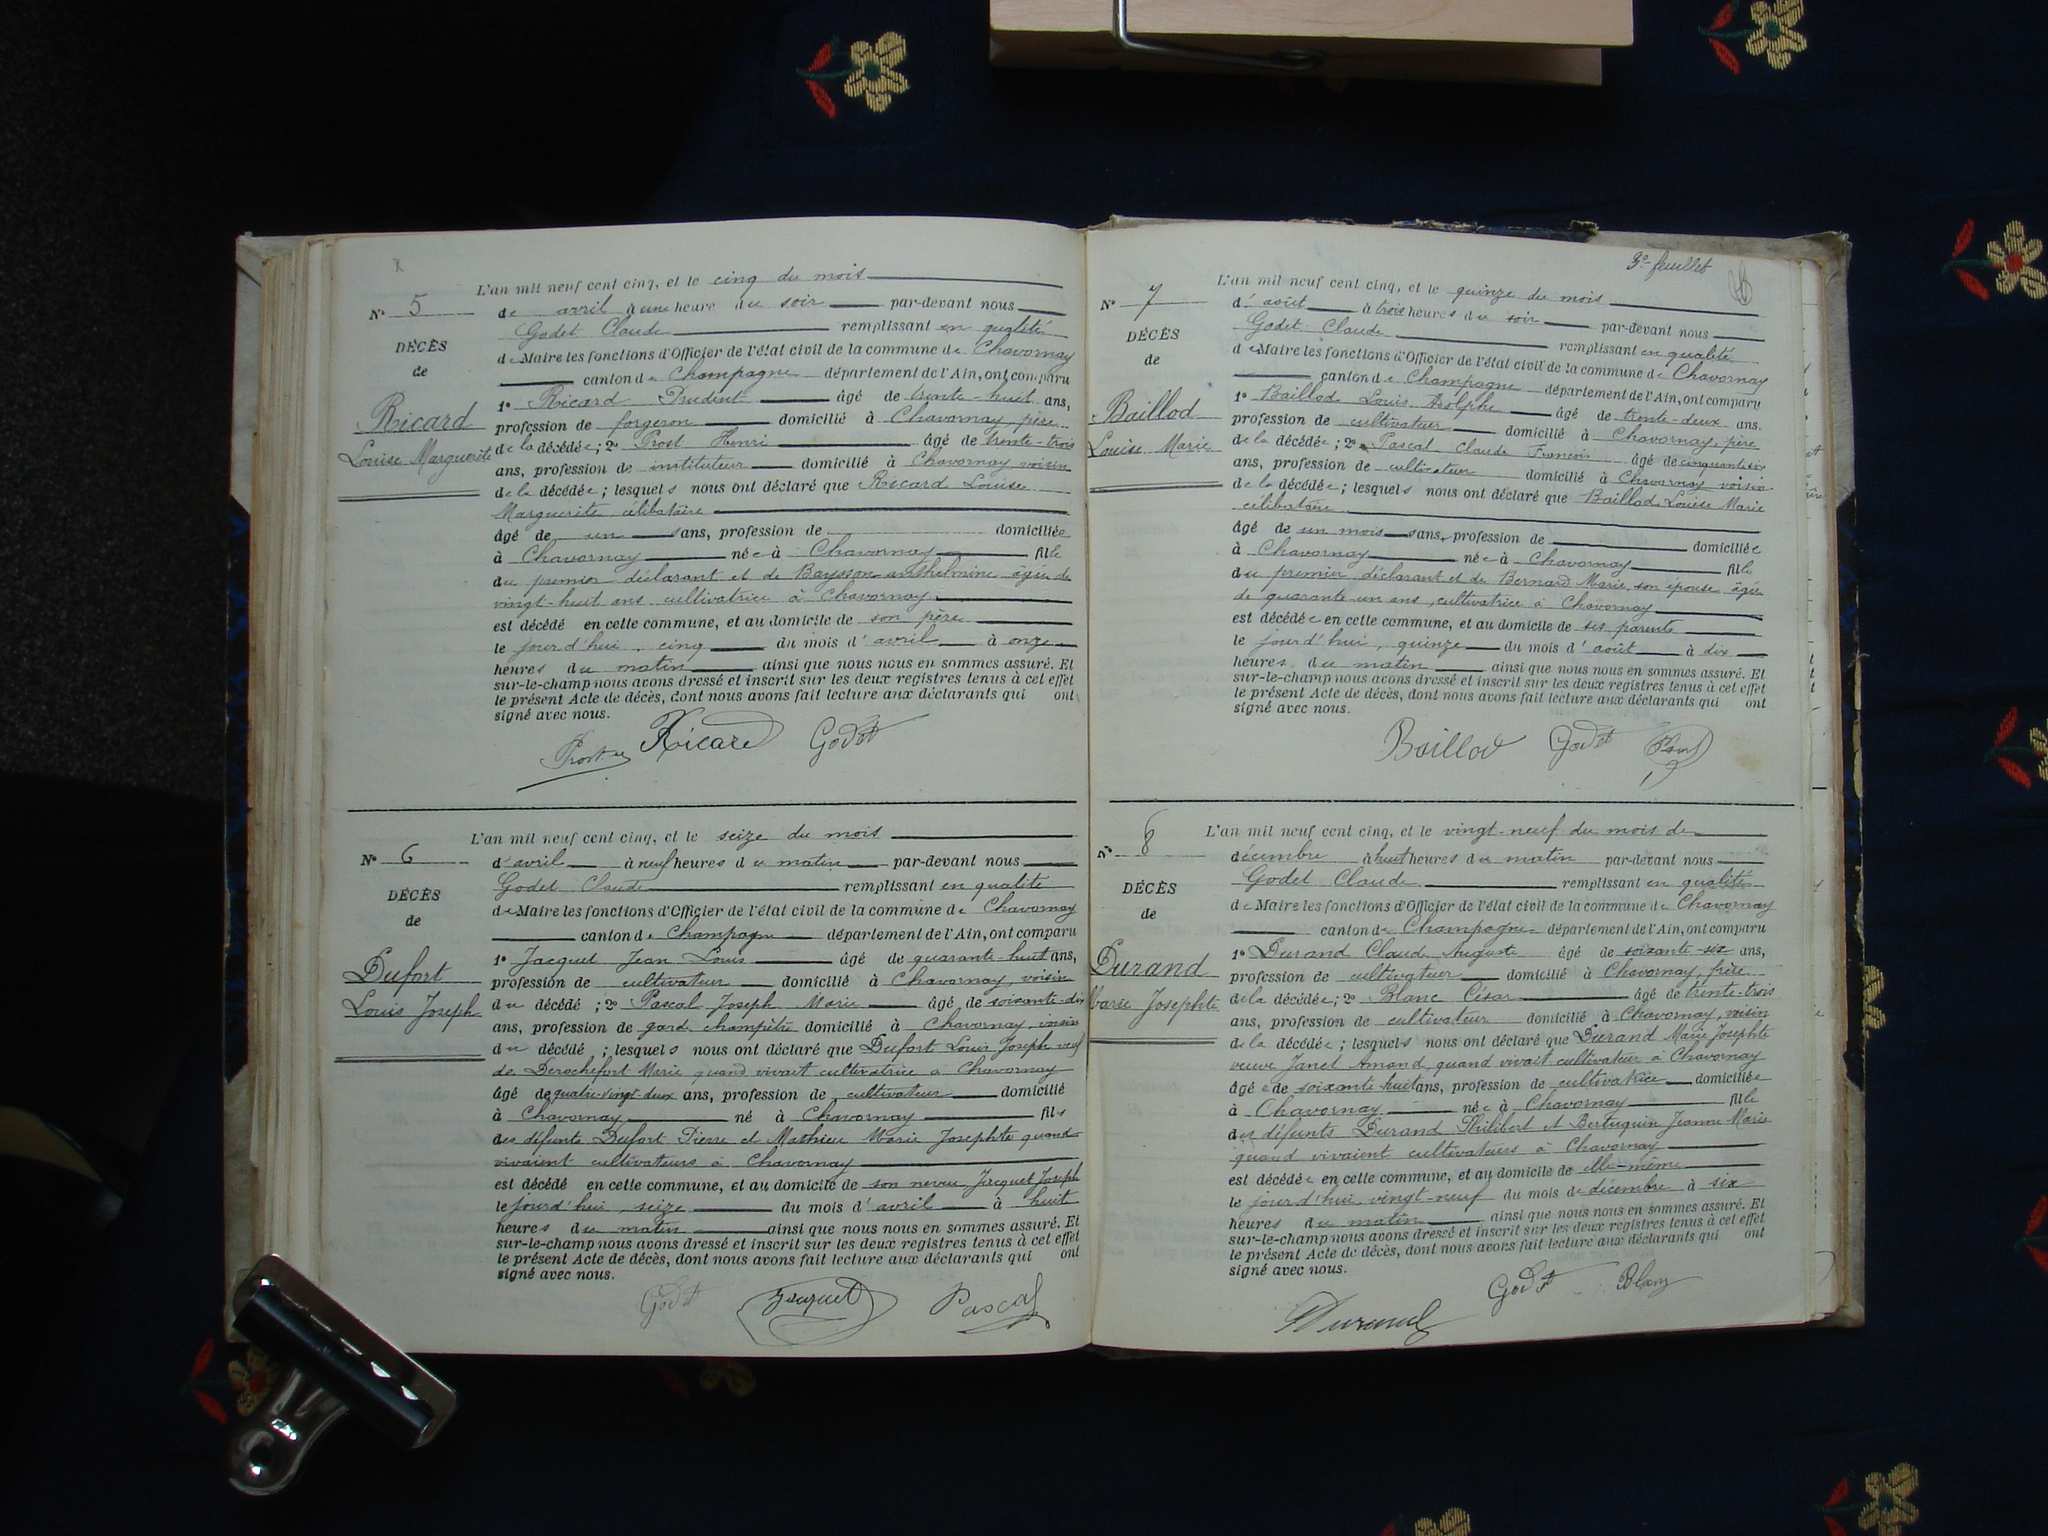 L'an mil neuf cent cinq, et le cinq du mois
N° 5
de avril à une heure du soir par-devant nous
Godet Claude remplissant en qualité
DÉCÈS
de Maire les fonctions d'Officier de l'état civil de la commune de Chavornay
de
canton de Champagne département de l'Ain, ont comparu
1° Ricard Prudent âgé de trente-huit ans,
Ricard
profession de forgeron domicilié à Chavornay, père
Louise Marguerite
de la décédée; 2° Prost Henri âgé de trente-trois
ans, profession de instituteur domicilié à Chavornay voisin
de la décédée; lesquels nous ont déclaré que Ricard Louise
Marguerite célibataire
âgé de un sans, profession de domiciliée
à Chavornay née à Chavornay fille
du premier déclarant et de Anthelmine âgée de
vingt-huit ans cultivatrice à Chavornay
est décédé en cette commune, et au domicile de son père
le jour d'hui, cinq du mois d'avril à onze
heures du matin ainsi que nous nous en sommes assuré. Et
sur-le-champ nous avons dressé et inscrit sur les deux registres tenus à cet effet
le présent Acte de décès, dont nous avons fait lecture aux déclarants qui ont
signé avec nous.
Prost Ricard Godet
L'an mil neuf cent cinq, et le seize du mois
N° 6
d'avril à neuf heures du matin par-devant nous
Godet Claude remplissant en qualité
DÉCÈS
de Maire les fonctions d'Officier de l'état civil de la commune de Chavornay
de
canton de Champagne département de l'Ain, ont comparu
1° Jacquet Jean Louis âgé de quarante-huit ans,
Dufort
profession de cultivateur domicilié à Chavornay, voisin
Louis Joseph
du décédé; 2° Pascal Joseph Marie âgé de soixante-dix
ans, profession de gard champêtre domicilié à Chavornay, voisin
du décédé; lesquels nous ont déclaré que Dufort Louis Joseph veuf
de Derochefort Marie quand vivait cultivatrice à Chavornay
âgé de quatre-vingt-deux ans, profession de cultivateur domicilié
à Chavornay né à Chavornay fils
des défunts Dufort Pierre et Mathieu Marie Josephte quand
vivaient cultivateurs à Chavornay
est décédé en cette commune, et au domicile de son neveu Jacquet Joseph
le jour d'hui, seize du mois d'avril à huit
heures du matin ainsi que nous nous en sommes assuré. Et
sur-le-champ nous avons dressé et inscrit sur les deux registres tenus à cet effet
le présent Acte de décès, dont nous avons fait lecture aux déclarants qui ont
signé avec nous.
Godet Jacquet Pascal
3e feuillet
L'an mil neuf cent cinq, et le quinze du mois
N° 7
d'août à trois heures du soir par-devant nous
Godet Claude remplissant en qualité
DÉCÈS
de Maire les fonctions d'Officier de l'état civil de la commune de Chavornay
de
canton de Champagne département de l'Ain, ont comparu
1° Baillod Louis Adolphe âgé de trente-deux ans.
Baillod
profession de cultivateur domicilié à Chavornay, père
Louise Marie
de la décédée; 2° Pascal Claude François âgé de cinquante six
ans, profession de cultivateur domicilié à Chavornay voisin
de la décédée; lesquels nous ont déclaré que Baillod Louise Marie
célibataire
âgé de un mois sans, profession de domiciliée
à Chavornay née à Chavornay fille
du premier déclarant et de Bernard Marie, son épouse âgée
de quarante un ans, cultivatrice à Chavornay
est décédée en cette commune, et au domicile de ses parents
le jour d'hui, quinze du mois d'août à dix
heures du matin ainsi que nous nous en sommes assuré. Et
sur-le-champ nous avons dressé et inscrit sur les deux registres tenus à cet effet
le présent Acte de décès, dont nous avons fait lecture aux déclarants qui ont
signé avec nous.
Baillod Godet
L'an mil neuf cent cinq, et le vingt-neuf du mois de
N° 8
décembre à huit heures du matin par-devant nous
Godet Claude remplissant en qualité
DÉCÈS
de Maire les fonctions d'Officier de l'état civil de la commune de Chavornay
de
canton de Champagne département de l'Ain, ont comparu
1° Durand Claud Auguste âgé de soixante-six ans,
Durand
profession de cultivateur domicilié à Chavornay, frère
Marie Josephte
de la décédée; 2° Blanc César âgé de trente-trois
ans, profession de cultivateur domicilié à Chavornay, voisin
de la décédée; lesquels nous ont déclaré que Durand Marie Josephte
veuve Janet Amand quand vivait cultivateur à Chavornay
âgée de soixante-huit ans, profession de cultivatrice domiciliée
à Chavornay née à Chavornay fille
des défunts Durand Philibert et Bertuquin Jeanne Marie
quand vivaient cultivateurs à Chavornay
est décédée en cette commune, et au domicile de elle-même
le jour d'hui, vingt-neuf du mois de décembre à six
heures du matin ainsi que nous nous en sommes assuré. Et
sur-le-champ nous avons dressé et inscrit sur les deux registres tenus à cet effet
le présent Acte de décès, dont nous avons fait lecture aux déclarants qui ont
signé avec nous.
Durand Godet Blanc